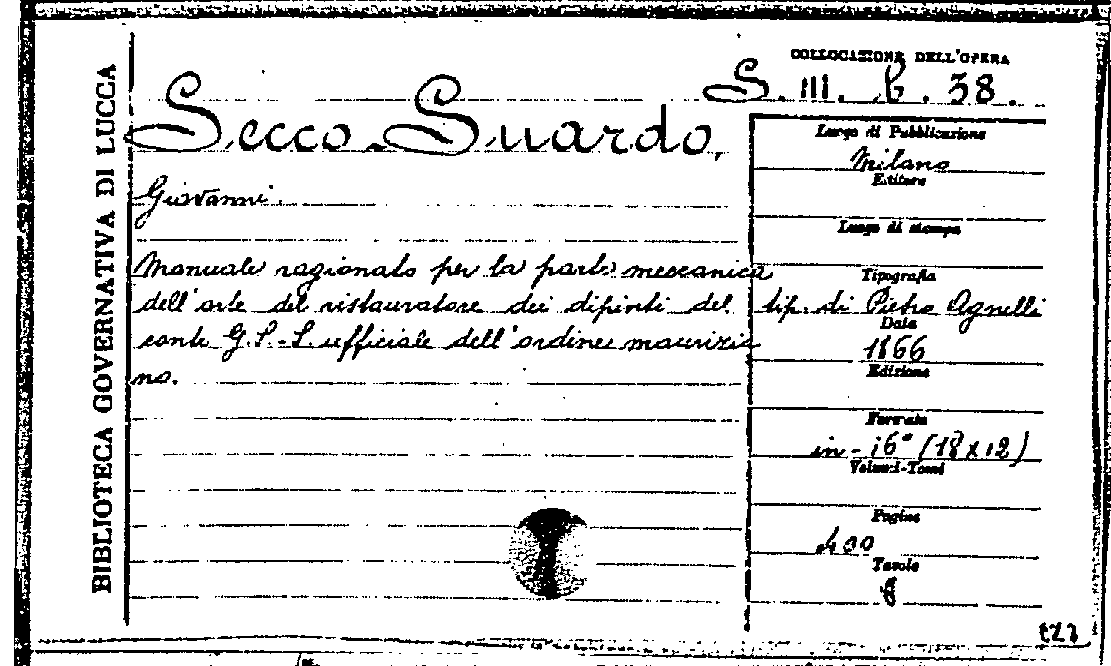 BIBLIOTECA GOVERNATIVA DI LUCCA
COLLOCAZIONE DELL'OPERA
S. III. 6. 38.
Secco-Suardo,
Giovanni.
Manuale ragionato per la parte meccanica
dell'arte del ristauratore dei dipinti del
conte G. S.-S. ufficiale dell'ordine maurizia
no.
Luogo di Pubblicazione
Milano
Editore
Luogo di stampa
Tipografia
tip. di Pietro Agnelli
Data
1866
Edizione
Formato
in-16° (18x12)
Volumi-Tomi
Pagine
400
Tavole